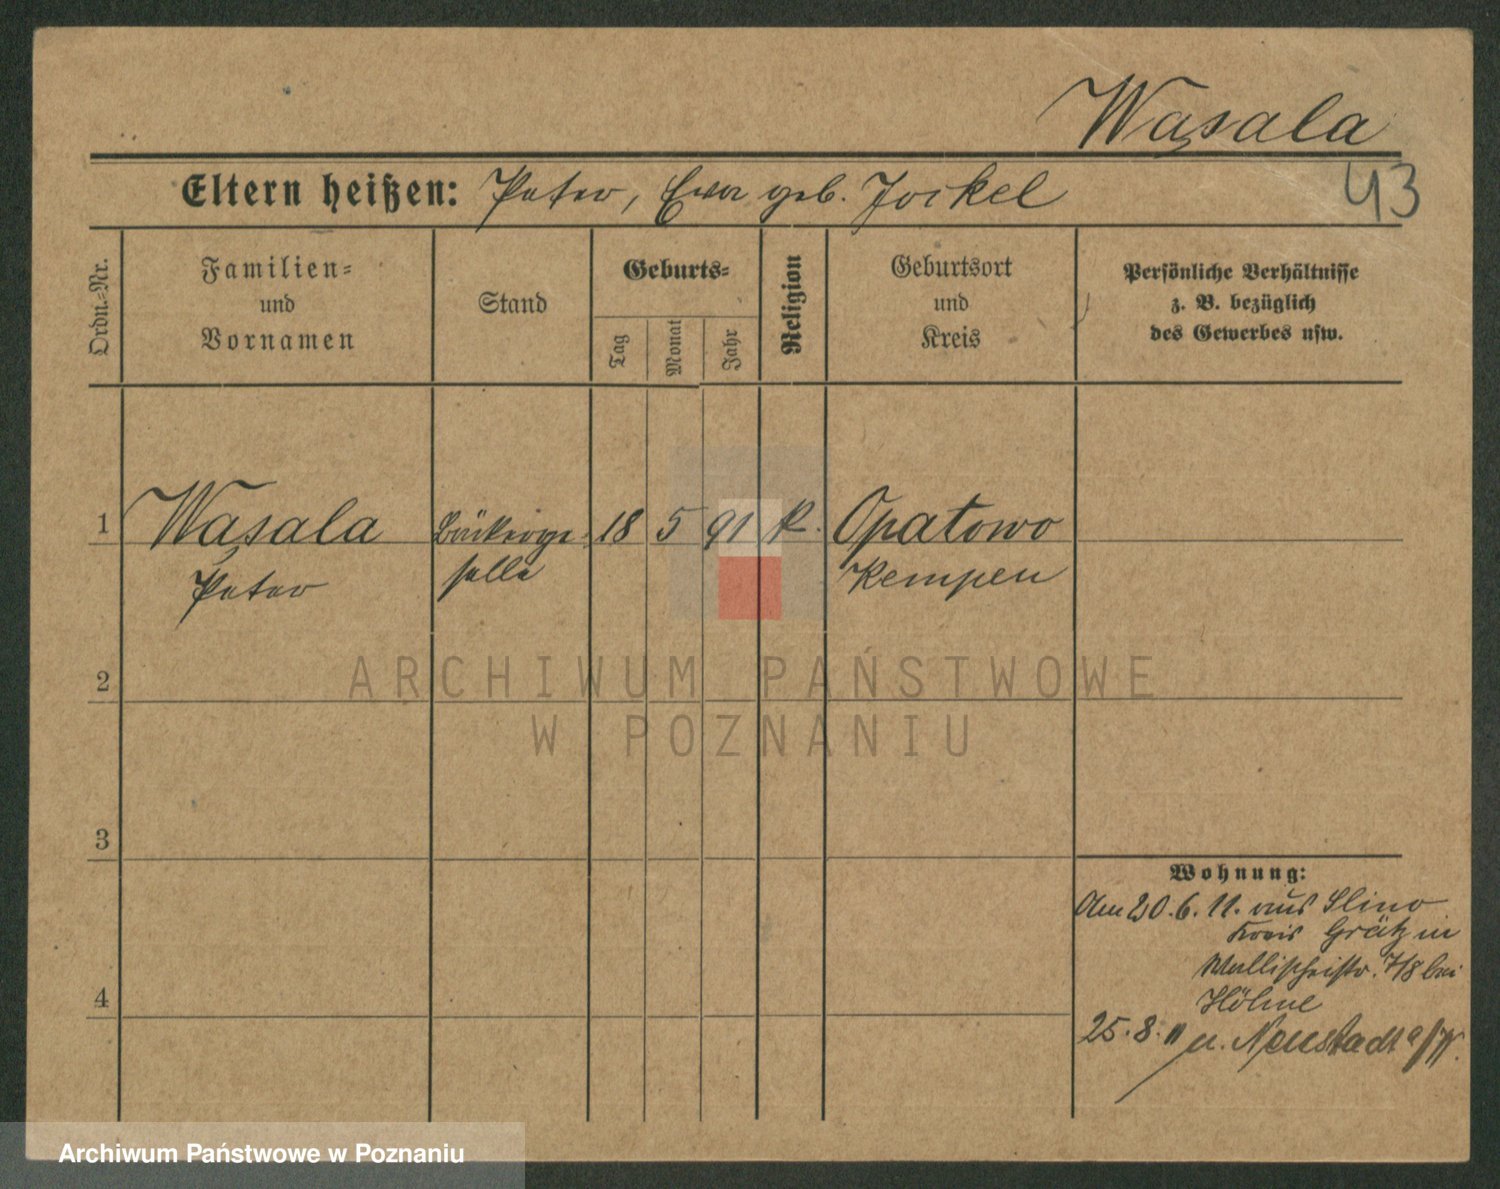 Wąsala
43
Eltern heißen: Peter, Eva geb. Jockel
Ordn.-Nr.
Familien-
und
Vornamen
Stand
Geburts-
Tag
Monat
Jahr
Religion
Geburtsort
und
Kreis
Persönliche Verhältnisse
z. B. bezüglich
des Gewerbes usw.
1 Wąsala Bäckerge- 18 5 91 k. Opatowo
Peter selle Kempen
2
3
4
ARCHIWUM PAŃSTWOWE
W POZNANIU
Wohnung:
Am 20.6.11. aus
Kreis Grätz in
Wallischeistr. 7/8 bei
25.8.11 n. Neustadt a/W.
Archiwum Państwowe w Poznaniu